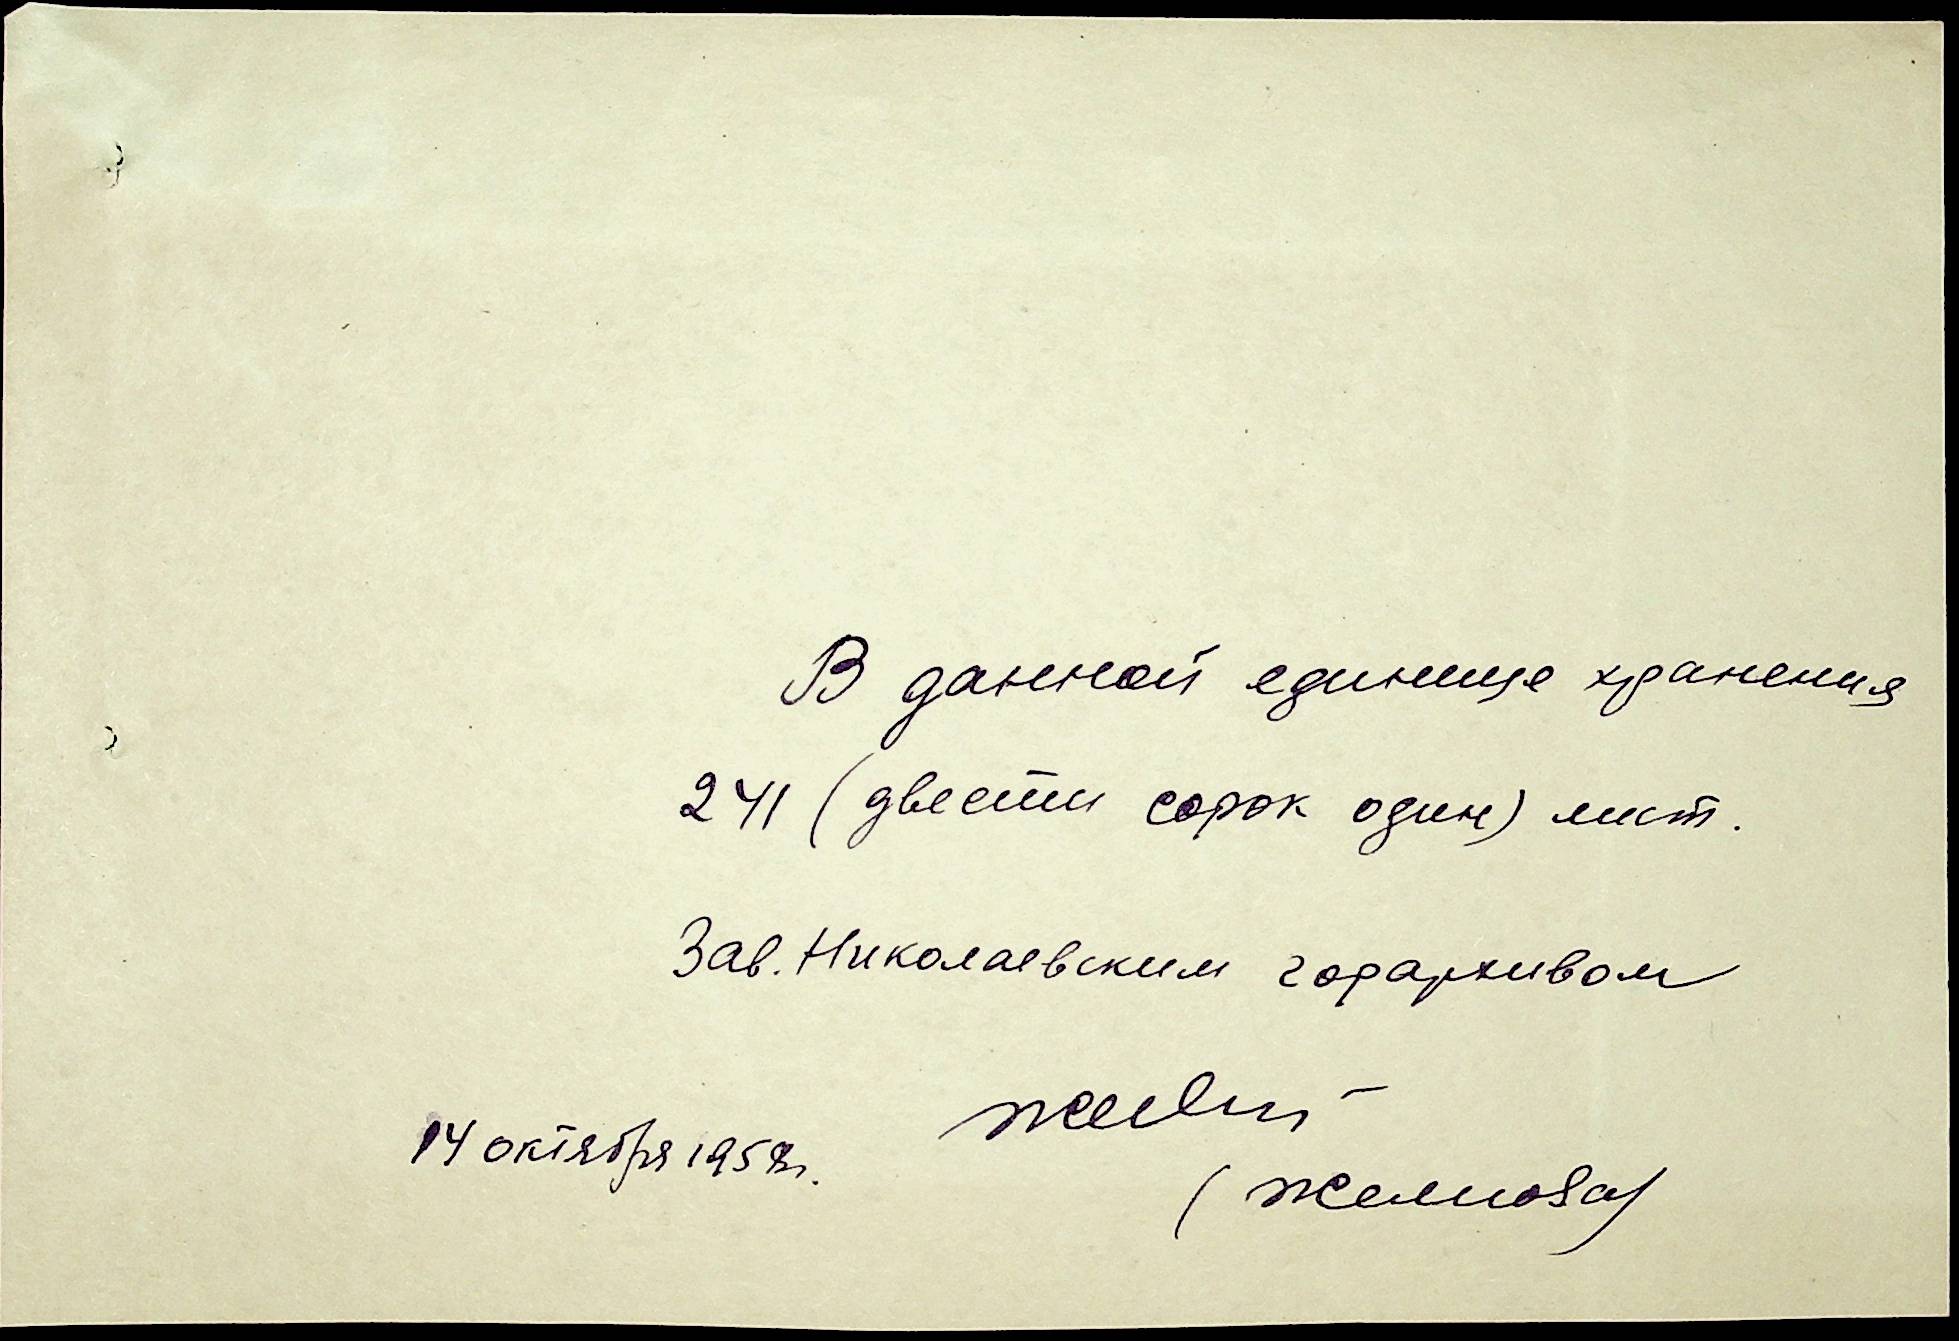 В данной единице хранения
241 (двести сорок один) лист.
Зав. Николаевским горархивом
14 октября 1958г.